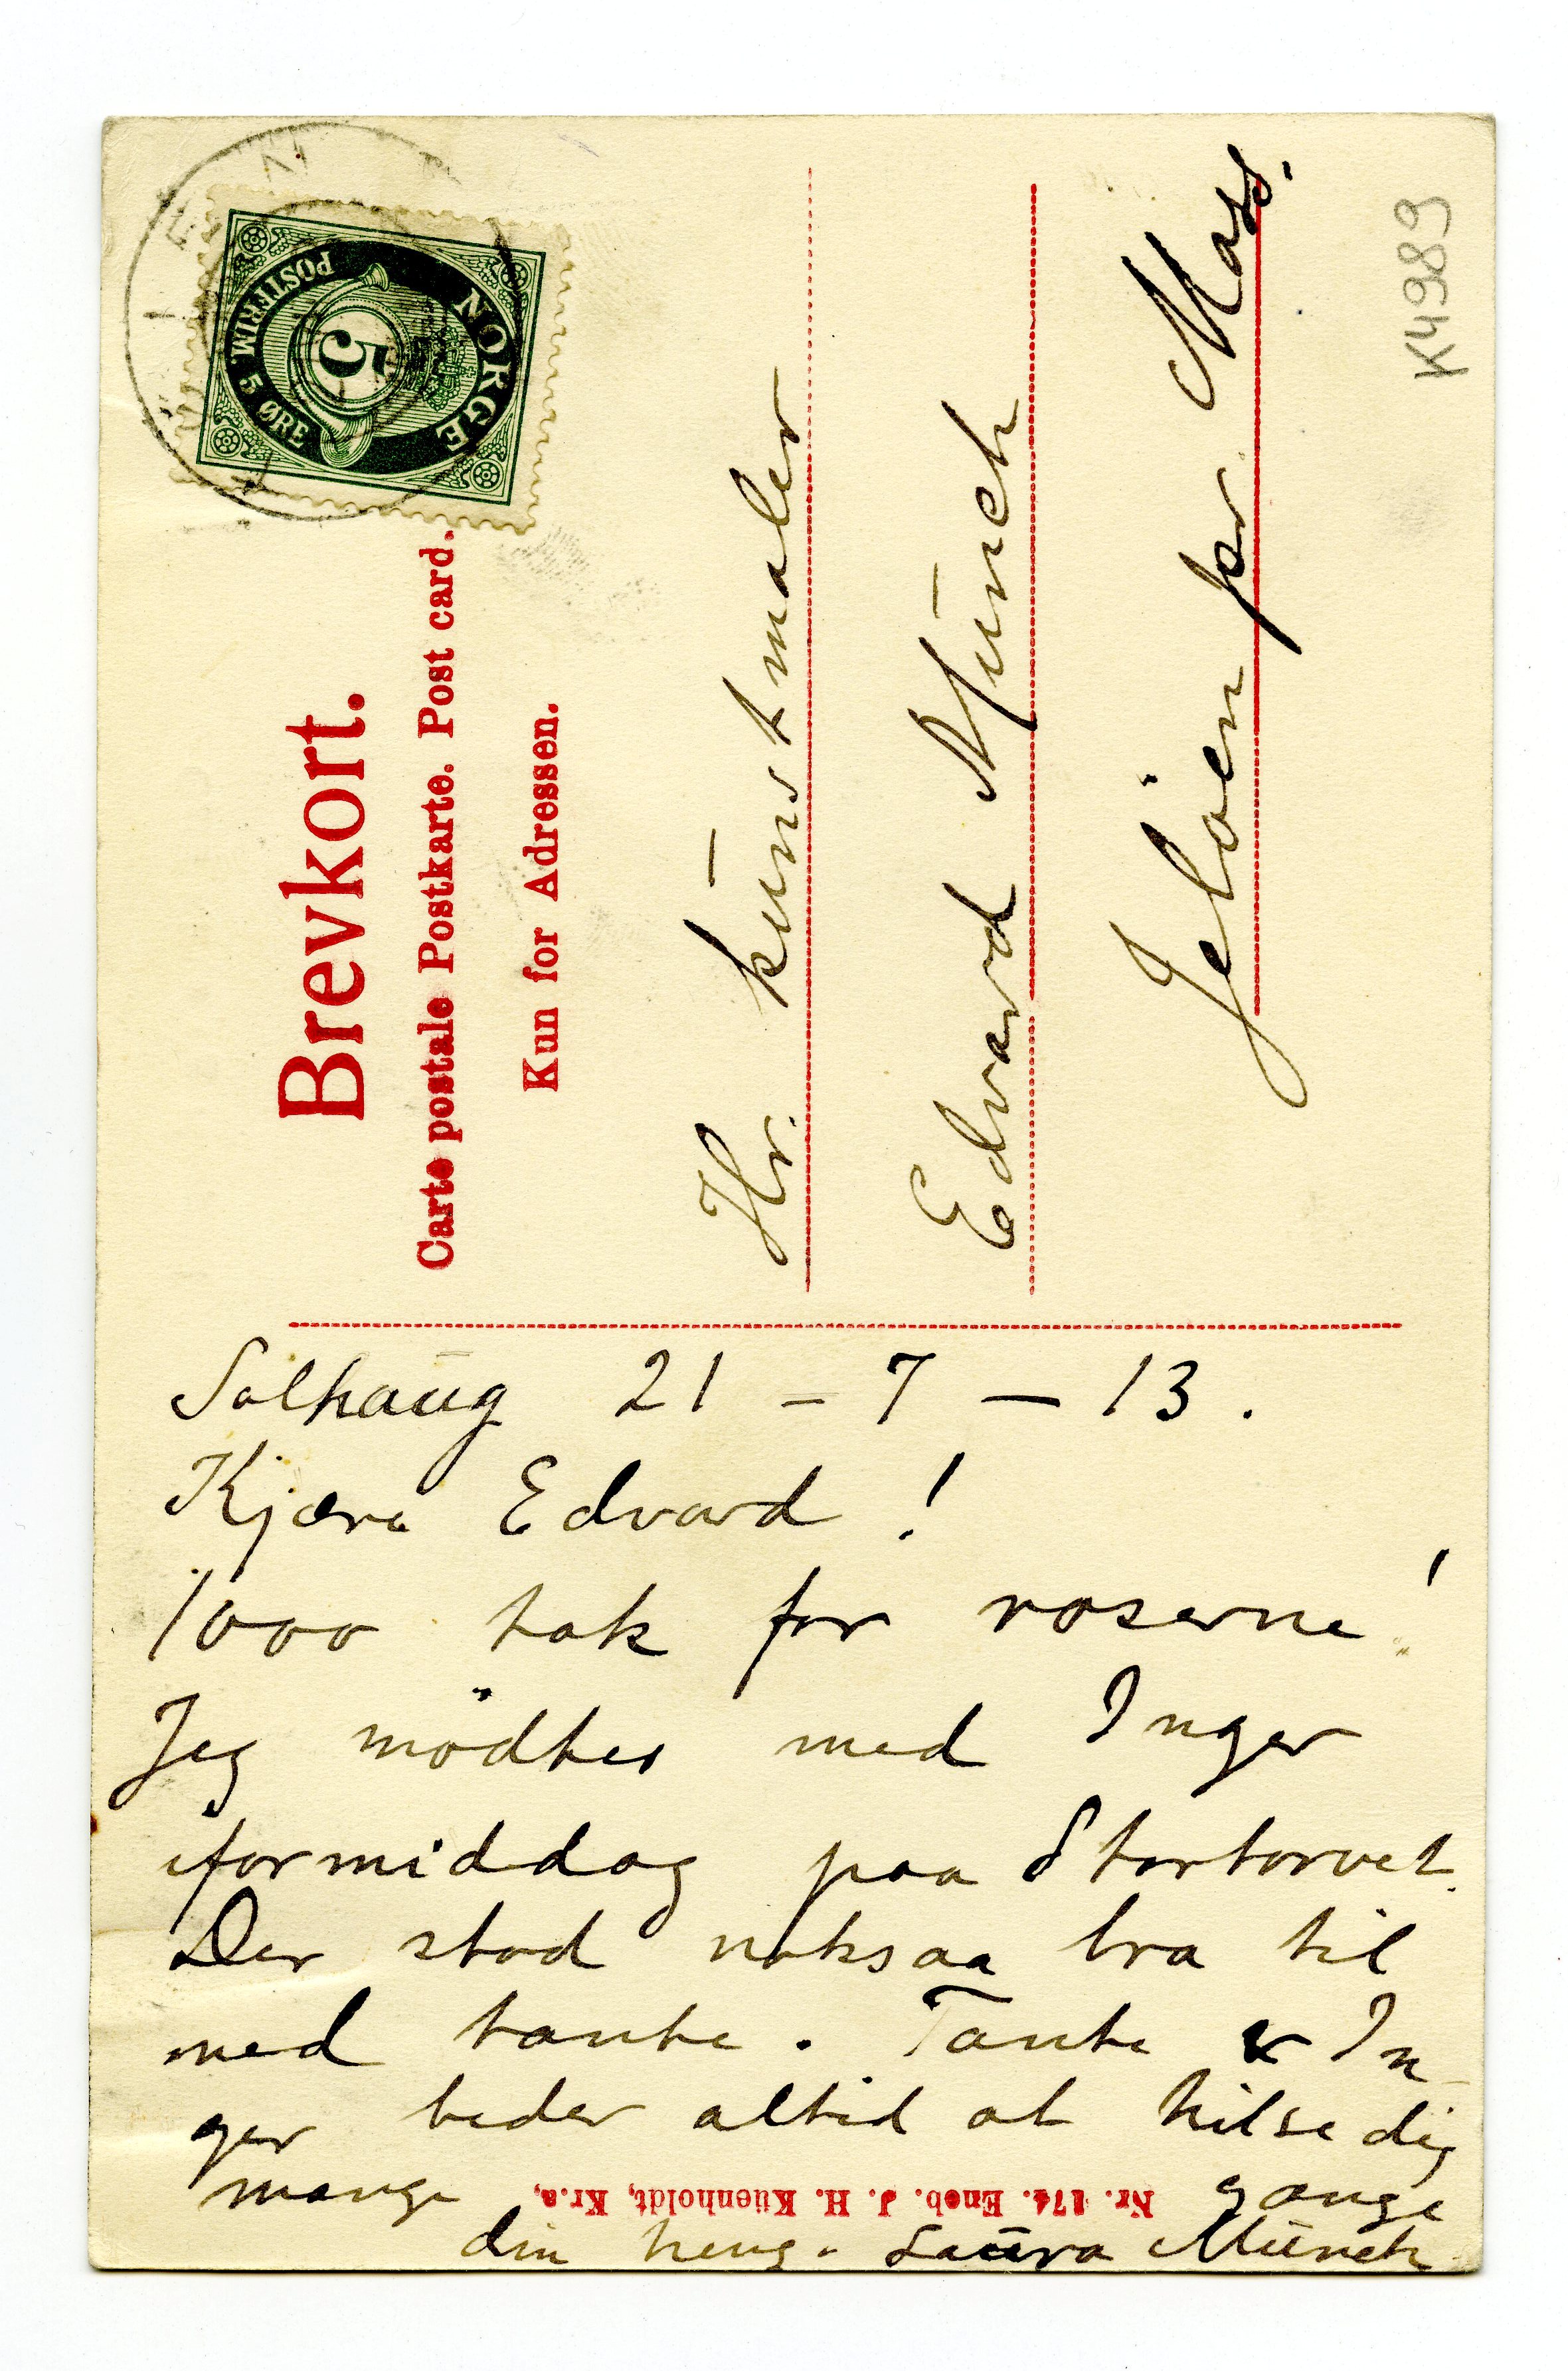 Brevkort.
Carte postale Postkarte. Post card.
Kun for Adressen.
NORGE
POSTFRIM. 5 ØRE
5
Hr. kūnstmaler
Edvard Mūnch
Jelöen pr. Moss.
K4989
Solhaūg 21 – 7 – 13.
Kjære Edvard!
1000 tak for roserne!
Jeg mödtes med Inger
iformiddag paa Stortorvet.
Der stod noksaa bra til
med tante. Tante & In
ger beder altid at hilse dig
mange gange
Nr. 174. Eneb. J. H. Küenholdt, Kr.a,
din heng. Laūra Mūnch